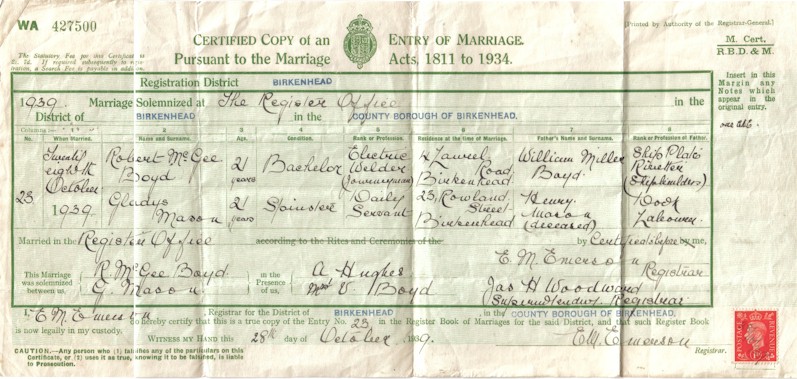 WA 427500
CERTIFIED COPY of an ENTRY OF MARRIAGE.
Pursuant to the Marriage Acts, 1811 to 1934.
[Printed by Authority of the Registrar-General.]
M. Cert.
R.B.D. & M.
The Statutory Fee for this Certificate is
If required subsequently to
a Search Fee is payable in addition.
Insert in this
Margin any
Notes which
appear in the
original entry.
Registration District BIRKENHEAD
1939. Marriage Solemnized at The Register Office in the
District of BIRKENHEAD in the COUNTY BOROUGH OF BIRKENHEAD.
Columns:— 1 2 3 4 5 6 7 8
No. When Married. Name and Surname. Age. Condition. Rank or Profession. Residence at the time of Marriage. Father's Name and Surname. Rank or Profession of Father.
23 Twenty eighth October 1939
Robert McGee Boyd 21 years Bachelor Electric Welder (Journeyman) 4 Laurel Road Birkenhead William Miller Boyd Ship's Plate Riveter (Shipbuilders)
Gladys Mason 21 years Spinster Daily Servant 25, Rowland Street Birkenhead Henry Mason (deceased) Dock Labourer
Married in the Register Office according to the Rites and Ceremonies of the by Certificate before by me,
This Marriage was solemnized between us,
R. McGee Boyd.
G. Mason
in the Presence of us,
A Hughes
V. Boyd
E. M. Emerson
Registrar
Jas H Woodward
Superintendent Registrar
I, E M Emerson Registrar for the District of BIRKENHEAD, in the COUNTY BOROUGH OF BIRKENHEAD.
do hereby certify that this is a true copy of the Entry No. 23, in the Register Book of Marriages for the said District, and that such Register Book
is now legally in my custody.
WITNESS MY HAND this 28th day of October 1939.
E M Emerson
Registrar.
CAUTION.—Any person who (1) falsifies any of the particulars on this
Certificate, or (2) uses it as true, knowing it to be falsified, is liable
to Prosecution.
POSTAGE REVENUE